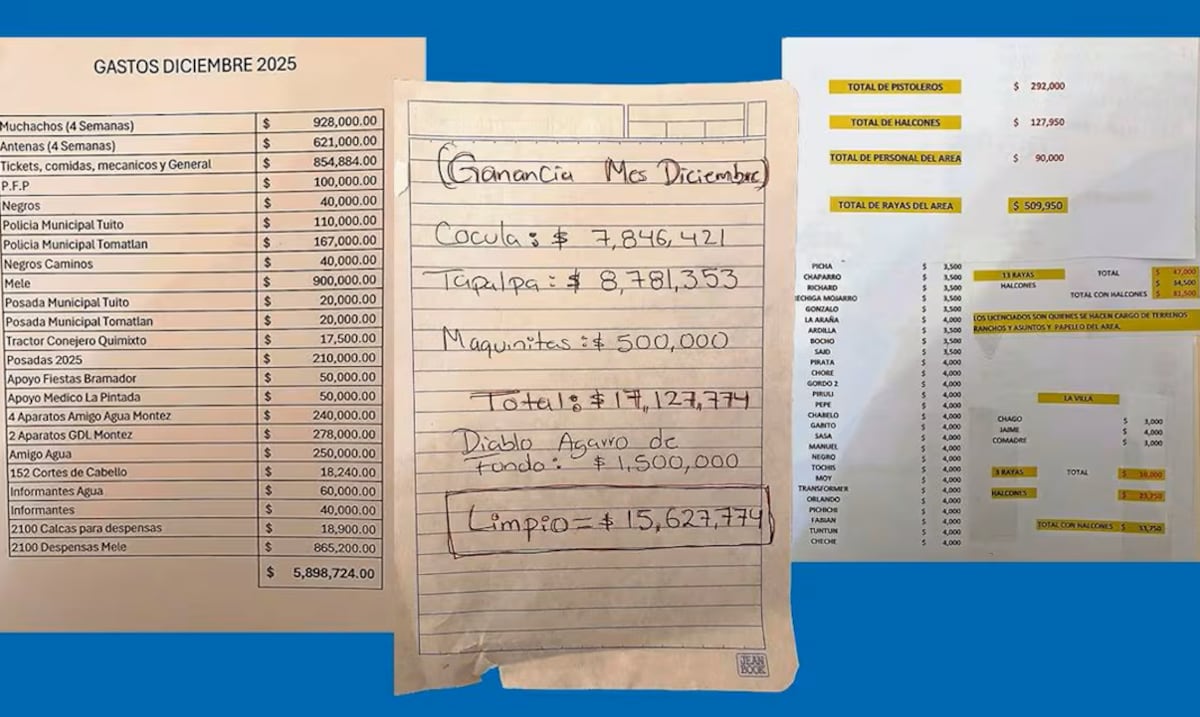 GASTOS DICIEMBRE 2025
Muchachos (4 Semanas) $ 928,000.00
Antenas (4 Semanas) $ 621,000.00
Tickets, comidas, mecanicos y General $ 854,884.00
P.F.P $ 100,000.00
Negros $ 40,000.00
Policia Municipal Tuito $ 110,000.00
Policia Municipal Tomatlan $ 167,000.00
Negros Caminos $ 40,000.00
Mele $ 900,000.00
Posada Municipal Tuito $ 20,000.00
Posada Municipal Tomatlan $ 20,000.00
Tractor Conejero Quimixto $ 17,500.00
Posadas 2025 $ 210,000.00
Apoyo Fiestas Bramador $ 50,000.00
Apoyo Medico La Pintada $ 50,000.00
4 Aparatos Amigo Agua Montez $ 240,000.00
2 Aparatos GDL Montez $ 278,000.00
Amigo Agua $ 250,000.00
152 Cortes de Cabello $ 18,240.00
Informantes Agua $ 60,000.00
Informantes $ 40,000.00
2100 Calcas para despensas $ 18,900.00
2100 Despensas Mele $ 865,200.00
$ 5,898,724.00
(Ganancia Mes Diciembre)
Cocula: $ 7,846,421
Tapalpa: $ 8,781,353
Maquinitas: $ 500,000
Total: $ 17,127,774
Diablo Agarro de
Fondo: $ 1,500,000
Limpio = $ 15,627,774
JEAN
BOOK
TOTAL DE PISTOLEROS $ 292,000
TOTAL DE HALCONES $ 127,950
TOTAL DE PERSONAL DEL AREA $ 90,000
TOTAL DE RAYAS DEL AREA $ 509,950
PICHA $ 3,500
CHAPARRO $ 3,500
RICHARD $ 3,500
ECHIGA MOJARRO $ 3,500
GONZALO $ 3,500
LA ARAÑA $ 4,000
ARDILLA $ 3,500
BOCHO $ 3,500
SAID $ 3,500
PIRATA $ 4,000
CHORE $ 4,000
GORDO 2 $ 4,000
PIRULI $ 4,000
PEPE $ 4,000
CHABELO $ 4,000
GABITO $ 4,000
SASA $ 4,000
MANUEL $ 4,000
NEGRO $ 4,000
TOCHIS $ 4,000
MOY $ 4,000
TRANSFORMER $ 4,000
ORLANDO $ 4,000
PICHICHI $ 4,000
FABIAN $ 4,000
TUNTUN $ 4,000
CHECHE $ 4,000
13 RAYAS TOTAL $ 47,000
HALCONES $ 34,500
TOTAL CON HALCONES $ 81,500
LOS LICENCIADOS SON QUIENES SE HACEN CARGO DE TERRENOS
RANCHOS Y ASUNTOS Y PAPELEO DEL AREA.
LA VILLA
CHAGO $ 3,000
JAIME $ 4,000
COMADRE $ 3,000
3 RAYAS TOTAL $ 10,000
HALCONES $ 23,750
TOTAL CON HALCONES $ 33,750